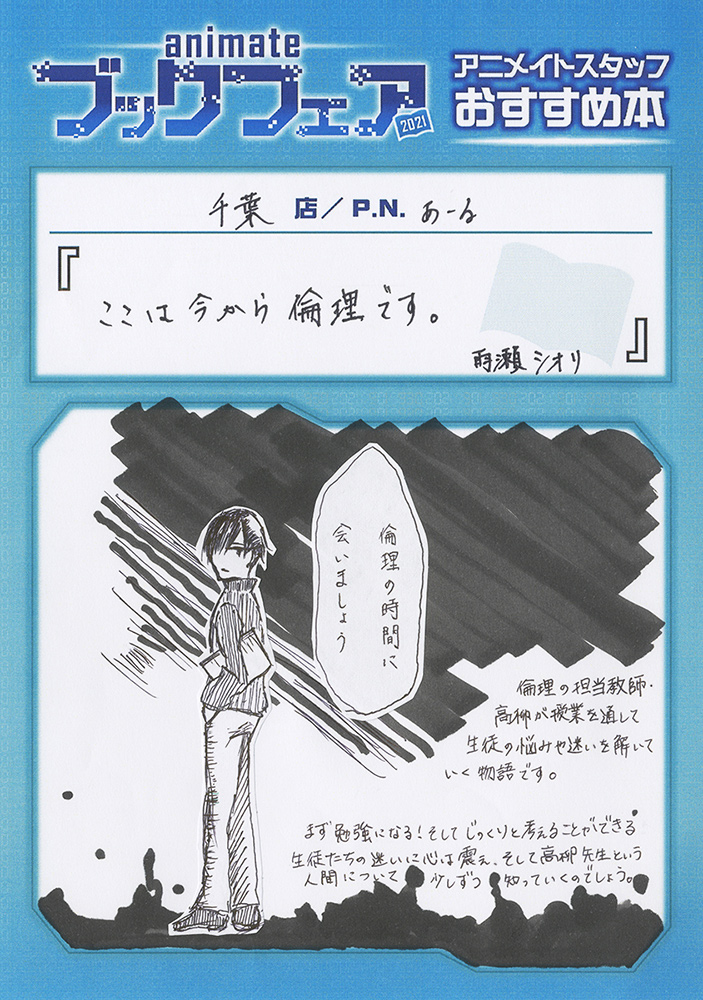 animate
ブックフェア
2021
アニメイトスタッフ
おすすめ本
千葉 店/P.N. あーる
『
ここは今から倫理です。
雨瀬シオリ
』
倫理の時間に
会いましょう
倫理の担当教師・
高柳が授業を通して
生徒の悩みや迷いを解いて
いく物語です。
まず勉強になる!そしてじっくりと考えることができる
生徒たちの迷いに心は震え、そして高柳先生という
人間について少しずつ知っていくのでしょう。